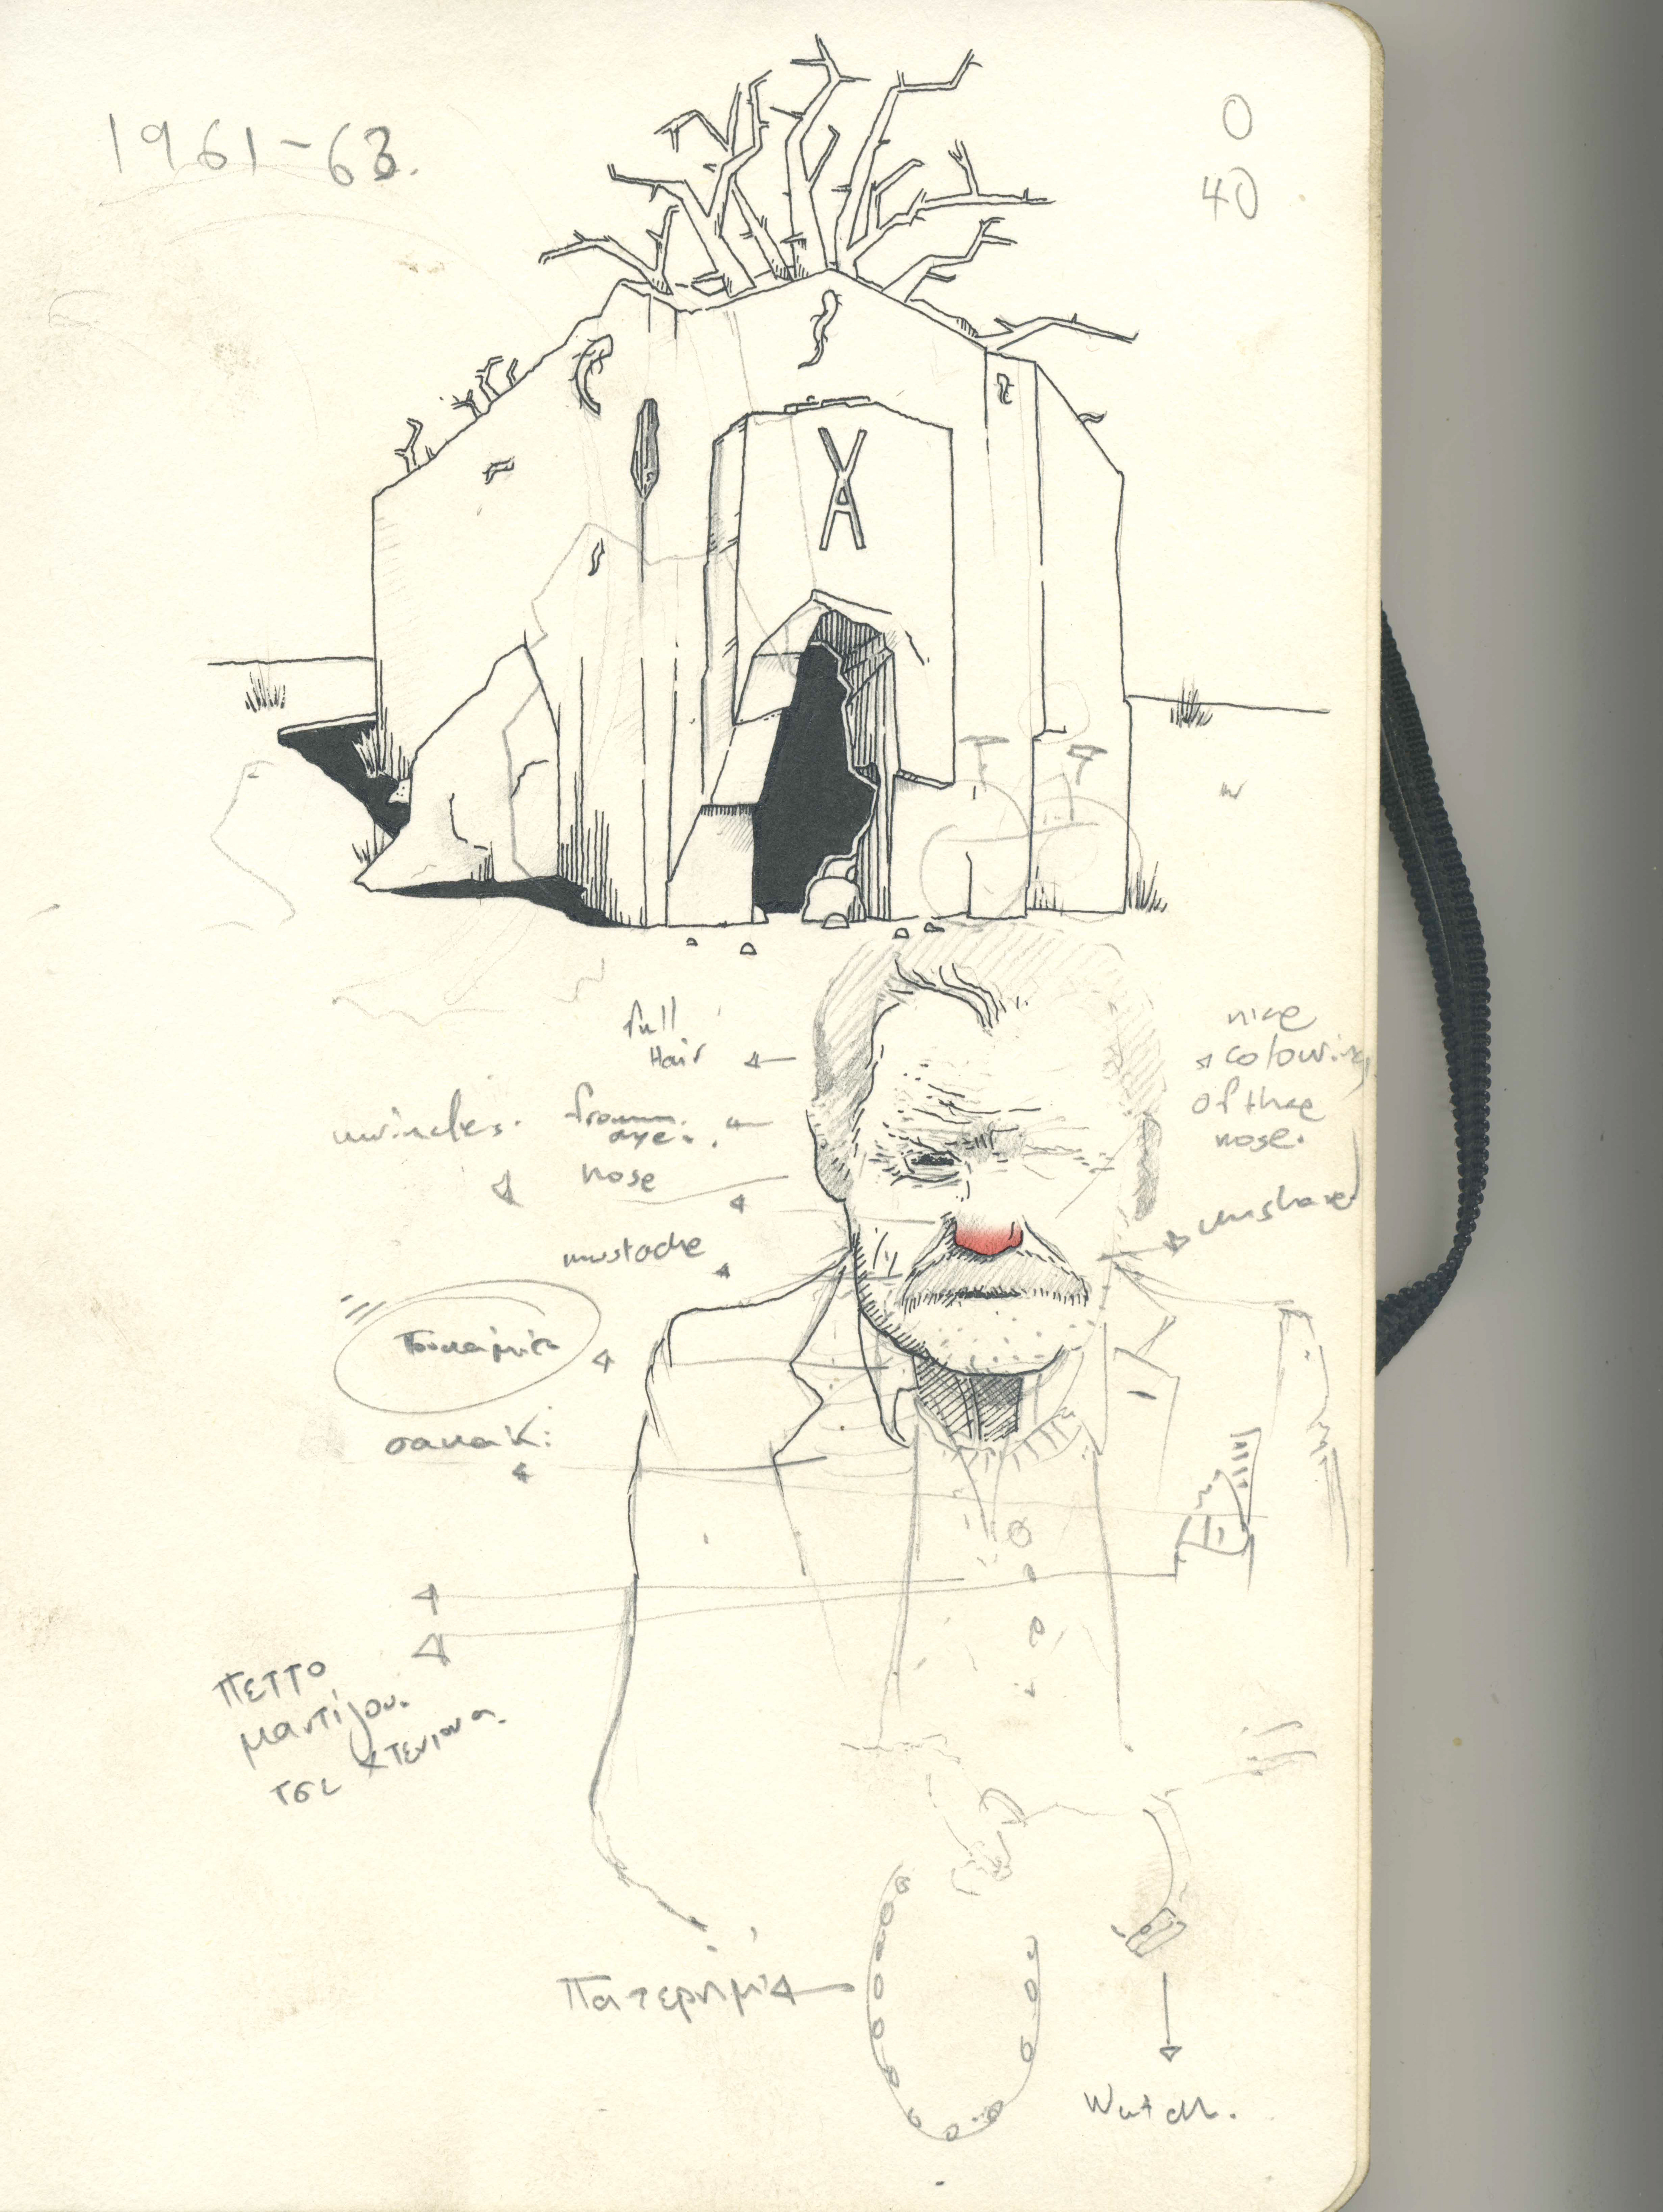 1961-63.
0
40
full
Hair
nice
colouring
of thee
nose.
wrincles.
frowm.
aye.
nose
unshaved
mustache
σακακ:
πεττο
μαντίλου.
τσι κτενιονα.
Πατερημ
Watch.